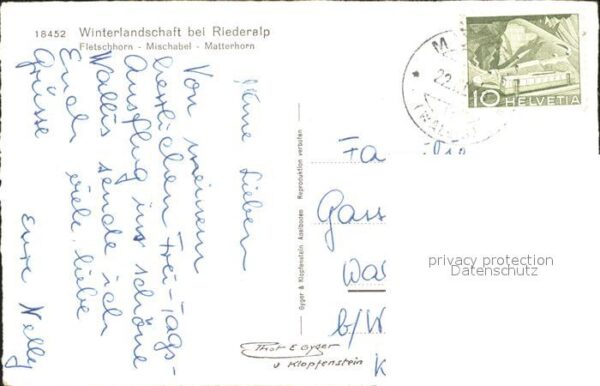 18452 Winterlandschaft bei Riederalp
Fletschhorn - Mischabel - Matterhorn
Meine Lieben
Von meinem
herrlichen Frei-Tags-
Ausflug ins schöne
Wallis sende ich
Euch viele liebe
Grüsse
Eure Nelly
Gyger & Klopfenstein Adelboden Reproduktion verboten
10 HELVETIA
Fa
Gass
Wa
b/W
K
privacy protection
Datenschutz
Phot E Gyger
u Klopfenstein